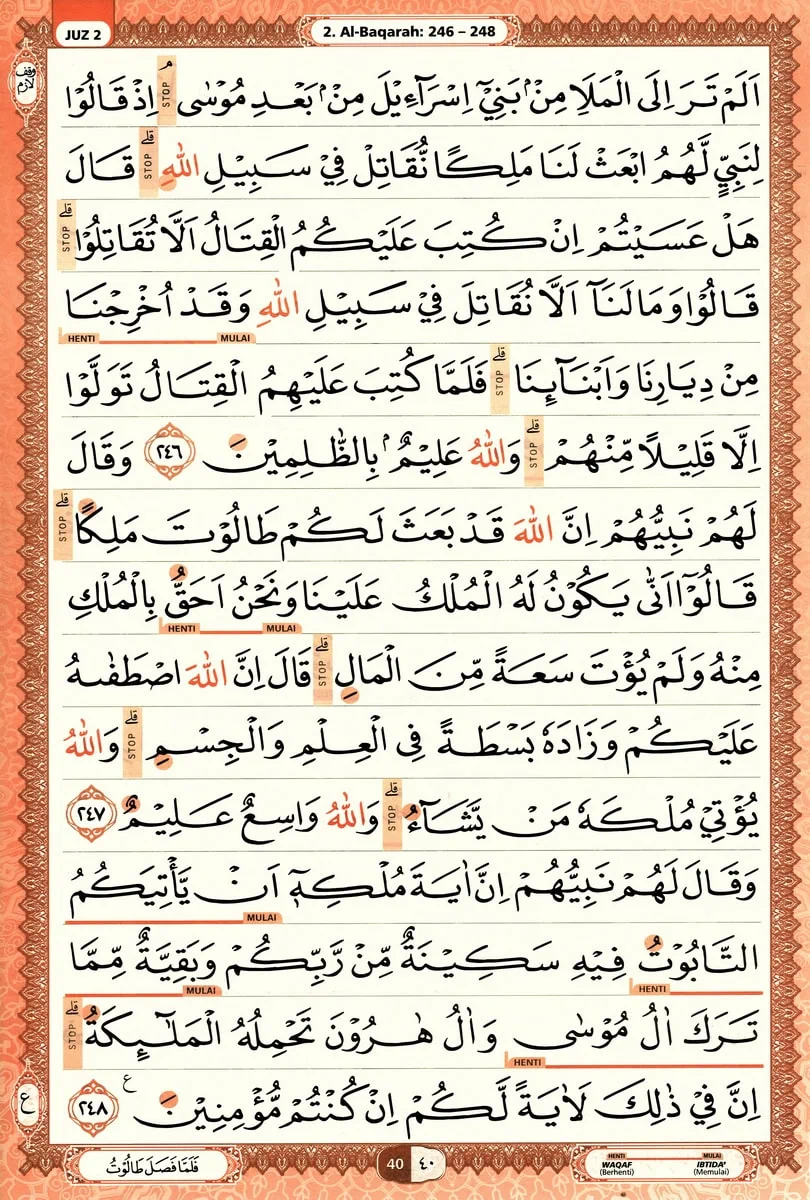 JUZ 2
2. Al-Baqarah: 246 – 248
وقف لازم
اَلَمْ تَرَ اِلَى الْمَلَاِ مِنْۢ بَنِيْٓ اِسْرَاۤءِيْلَ مِنْۢ بَعْدِ مُوْسٰى ۘ STOP اِذْ قَالُوْا
لِنَبِيٍّ لَّهُمُ ابْعَثْ لَنَا مَلِكًا نُّقَاتِلْ فِيْ سَبِيْلِ اللّٰهِ ۗ STOP قَالَ
هَلْ عَسَيْتُمْ اِنْ كُتِبَ عَلَيْكُمُ الْقِتَالُ اَلَّا تُقَاتِلُوْا ۗ STOP
قَالُوْا وَمَا لَنَآ اَلَّا نُقَاتِلَ فِيْ سَبِيْلِ اللّٰهِ وَقَدْ اُخْرِجْنَا
MULAI HENTI
مِنْ دِيَارِنَا وَاَبْنَاۤىِٕنَا ۗ STOP فَلَمَّا كُتِبَ عَلَيْهِمُ الْقِتَالُ تَوَلَّوْا
اِلَّا قَلِيْلًا مِّنْهُمْ ۗ STOP وَاللّٰهُ عَلِيْمٌۢ بِالظّٰلِمِيْنَ ٢٤٦ وَقَالَ
لَهُمْ نَبِيُّهُمْ اِنَّ اللّٰهَ قَدْ بَعَثَ لَكُمْ طَالُوْتَ مَلِكًا ۗ STOP
قَالُوْٓا اَنّٰى يَكُوْنُ لَهُ الْمُلْكُ عَلَيْنَا وَنَحْنُ اَحَقُّ بِالْمُلْكِ
MULAI HENTI
مِنْهُ وَلَمْ يُؤْتَ سَعَةً مِّنَ الْمَالِ ۗ STOP قَالَ اِنَّ اللّٰهَ اصْطَفٰىهُ
عَلَيْكُمْ وَزَادَهٗ بَسْطَةً فِى الْعِلْمِ وَالْجِسْمِ ۗ STOP وَاللّٰهُ
يُؤْتِيْ مُلْكَهٗ مَنْ يَّشَاۤءُ ۗ STOP وَاللّٰهُ وَاسِعٌ عَلِيْمٌ ٢٤٧
وَقَالَ لَهُمْ نَبِيُّهُمْ اِنَّ اٰيَةَ مُلْكِهٖٓ اَنْ يَّأْتِيَكُمُ
MULAI
التَّابُوْتُ فِيْهِ سَكِيْنَةٌ مِّنْ رَّبِّكُمْ وَبَقِيَّةٌ مِّمَّا
HENTI MULAI
تَرَكَ اٰلُ مُوْسٰى وَاٰلُ هٰرُوْنَ تَحْمِلُهُ الْمَلٰۤىِٕكَةُ ۗ STOP
HENTI
اِنَّ فِيْ ذٰلِكَ لَاٰيَةً لَّكُمْ اِنْ كُنْتُمْ مُّؤْمِنِيْنَ ࣖ ٢٤٨
ع
فَلَمَّا فَصَلَ طَالُوْتُ
40 ٤٠
HENTI MULAI
WAQAF IBTIDA'
(Berhenti) (Memulai)